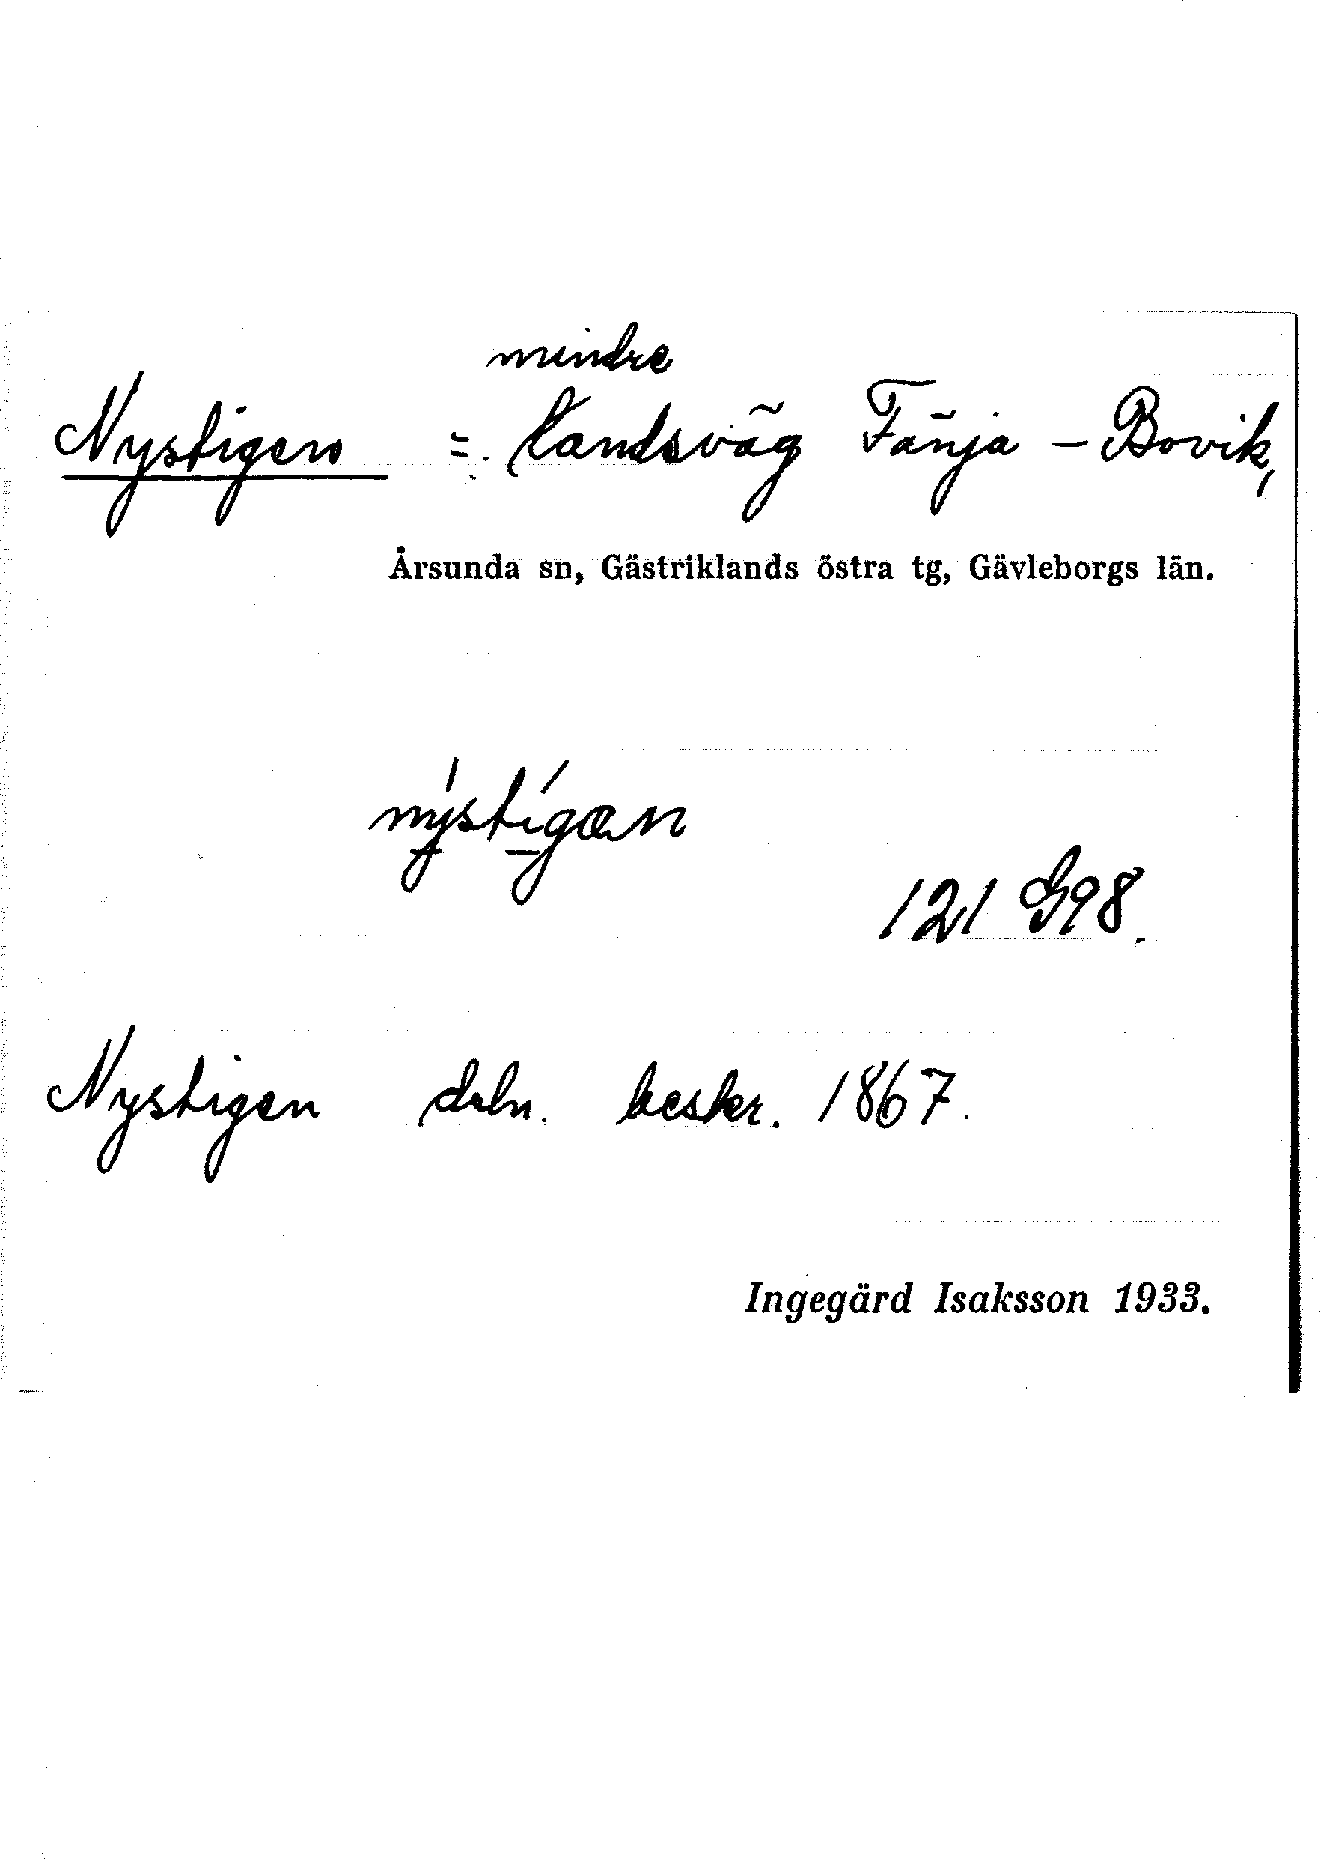 mindre
Nystigen = Landsväg Fänja - Bovik,
Årsunda sn, Gästriklands östra tg, Gävleborgs län.
nýstígæn
121 G98.
Nystigen beskr. 1867.
Ingegärd Isaksson 1933.